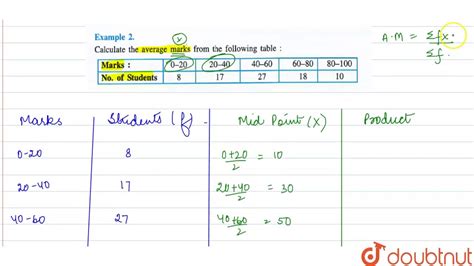 (x)
Example 2.
Calculate the average marks from the following table :
Marks : 0–20 20–40 40–60 60–80 80–100
No. of Students 8 17 27 18 10
A.M = Σfx.
Σf.
Marks Students (f). Mid Point (X) Product
0-20 8 0+20/2 = 10
20-40 17 20+40/2 = 30
40-60 27 40+60/2 = 50
doubtnut